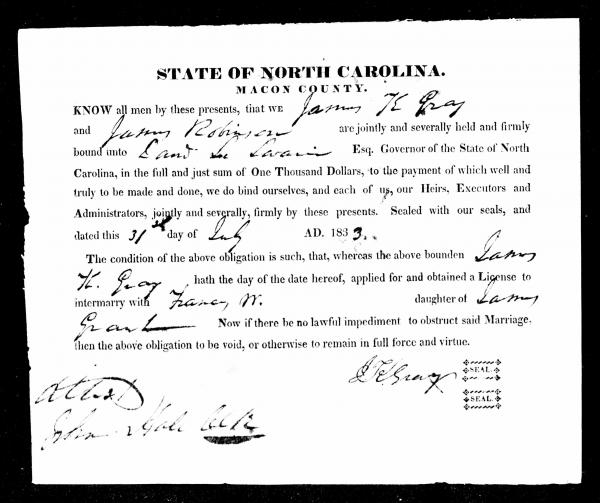 STATE OF NORTH CAROLINA.
MACON COUNTY.
KNOW all men by these presents, that WE James K Gray
and James Robinson are jointly and severally held and firmly
bound unto David L Swain Esq. Governor of the State of North
Carolina, in the full and just sum of One Thousand Dollars, to the payment of which well and
truly to be made and done, we do bind ourselves, and each of us, our Heirs, Executors and
Administrators, jointly and severally, firmly by these presents. Sealed with our seals, and
dated this 31st day of July AD. 1833.
The condition of the above obligation is such, that, whereas the above bounden James
K. Gray hath the day of the date hereof, applied for and obtained a License to
intermarry with Francis W. daughter of James
Grant Now if there be no lawful impediment to obstruct said Marriage,
then the above obligation to be void, or otherwise to remain in full force and virtue.
J K Gray SEAL.
SEAL.
Attest
John Hall Clk